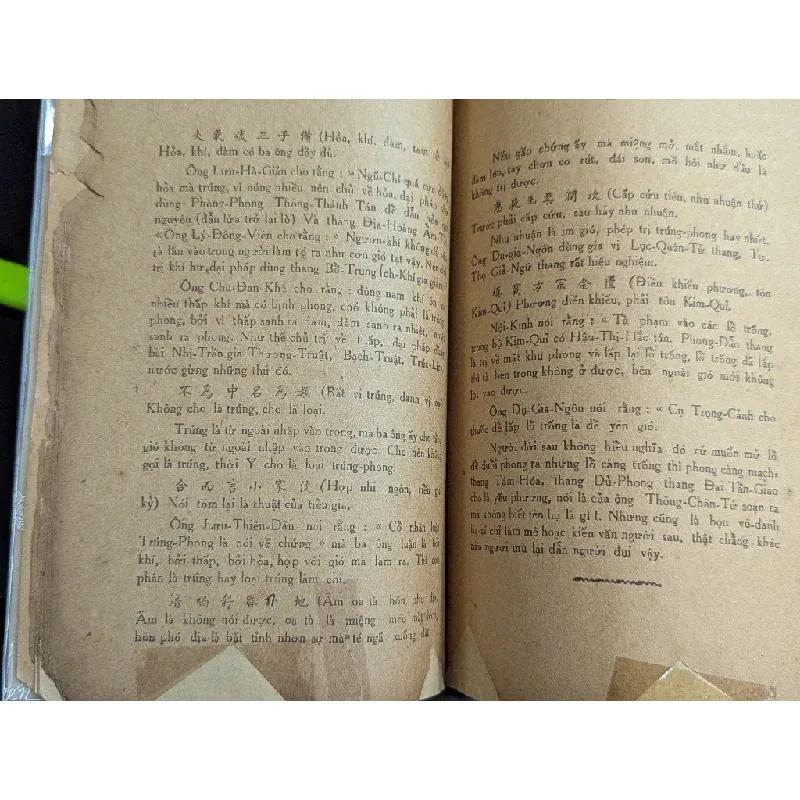 火氣痰三子備 (Hỏa, khí, đàm, tam
Hỏa, khí, đàm có ba ông đầy đủ.
Ông Lưu-Hà-Giản cho rằng : » Ngũ-Chí quá cực
hỏa mà trúng, vì nóng nhiều nên chủ về hỏa, đại pháp
dùng Phòng-Phong Thông-Thánh Tán để dẫn hỏa
nguyên (dẫn lửa trở lại lò) Và thang Địa-Hoàng Ẩm-Tử
«Ông Lý-Đông-Viên cho rằng : » Ngươn-khí không
ta lâu vào trong người làm té ra như cơn gió tạt vậy. Nên
trị khí hư, đại pháp dùng thang Bổ-Trung Ích-Khí gia giảm
Ông Chu-Đan-Khê cho rằng : đông nam khí
nhiều thấp khí mà có bịnh phong, chớ không phải là trúng
phong, bởi vì thấp sanh ra đàm, đàm sanh ra nhiệt,
sanh ra phong. Như thế chủ trị về thấp, đại pháp
bài Nhị-Trần gia Thương-Truật, Bạch-Truật, Trúc-Lịch
nước gừng những thứ đó.
不爲中名爲類 (Bất vi trúng, danh vi
Không cho là trúng, cho là loại.
Trúng là từ ngoài nhập vào trong, mà ba ông ấy cho
gió không từ ngoài nhập vào trong được. Cho nên không
gọi là trúng, thời Y cho là loại trúng-phong.
合而言小家伎 (Hợp nhi ngôn, tiểu gia
kỷ) Nói tóm lại là thuật của tiểu gia.
Ông Lưu-Thiên-Dân nói rằng : « Cổ thái
Trúng-Phong là nói về chứng » mà ba ông luận là bởi
khí, bởi thấp, bởi hỏa, hợp với gió mà làm ra. Thì
phân là trúng hay loại trúng làm chi.
瘖喎斜昏仆地 (Âm oa tà, hôn, phó địa),
Âm là không nói được, oa tà là miệng méo
hôn phó địa là bất tỉnh nhơn sự mà té ngã xuống đất
Nếu gấp chứng ấy mà miệng mở, mắt nhắm, hoặc
đàm lên, tay chơn co sút, đái son, mồ hôi như dầu là
không trị được.
急救先柔潤次 (Cấp cứu tiên, nhu nhuận thứ)
Trước phải cấp cứu, sau hãy nhu nhuận.
Nhu nhuận là im gió, phép trị trúng-phong hay nhứt.
Ông Dụ-gia-Ngôn dùng gia vị Lục-Quân-Tử thang, Tư-
Thọ Giải-Ngữ thang rất hiệu nghiệm.
填竅方宗金匱 (Điền khiếu phương, tôn
Kim-Quỉ) Phương điền khiếu, phải tôn Kim-Quỉ.
Nội-Kinh nói rằng : « Tà phạm vào các lỗ trống,
trong bộ Kim-Quỉ có Hậu-Thị-Hắc tán. Phong-Dẫn thang
là trị về mặt khu phong và lấp lại lỗ trống, lỗ trống đã lấp
thì tà bên trong không ở được, bên ngoài gió mới không
lọt vào được.
Ông Dụ-Gia-Ngôn nói rằng : « Cụ Trọng-Cảnh cho
thuốc để lấp lỗ trống là để yên gió.
Người đời sau không hiểu nghĩa đó cứ muốn mở lỗ
để đuổi phong ra nhưng lỗ càng trống thì phong càng mạch,
thang Tam-Hóa, thang Dũ-Phong thang Đại-Tần-Giao
cho là yếu phương, nói là của ông Thông-Chân-Tử soạn ra
mà không biết tên họ là gì !. Nhưng cũng là bọn vô-danh
họ-sĩ chỉ làm mờ hoặc kiến văn người sau, thật chẳng khác
nào người mù lại dẫn người đui vậy.